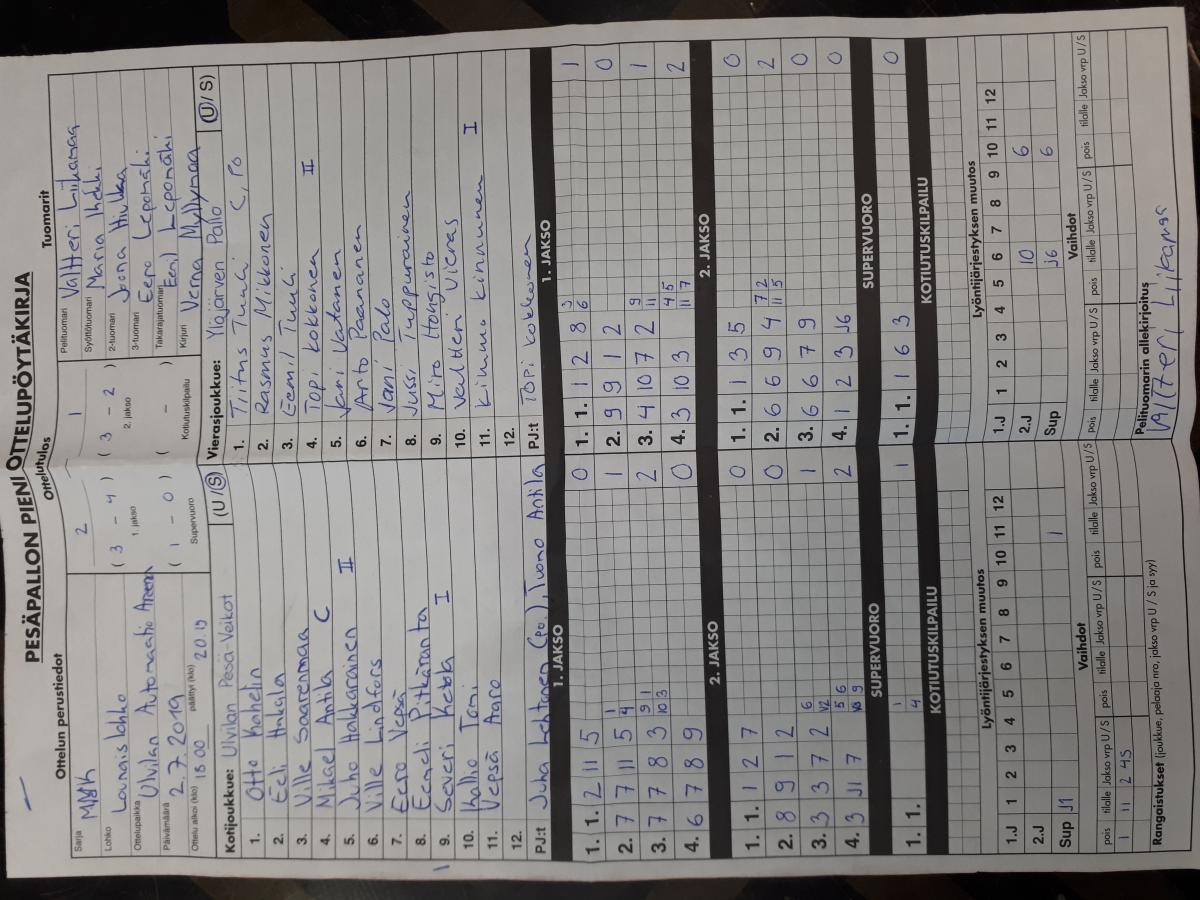 PESÄPALLON PIENI OTTELUPÖYTÄKIRJA
Ottelun perustiedot
Ottelutulos
Tuomarit
Sarja
Lohko Lounaislohko
Ottelupaikka Ulvilan Automaatio Areena
Päivämäärä 2.7.2019
Ottelu alkoi (klo) 18 00 päättyi (klo) 20.15
2 1
( 3 - 4 ) ( 3 - 2 )
1. jakso 2. jakso
( 1 - 0 ) ( - )
Supervuoro Kotiutuskilpailu
Pelituomari Valtteri Liikamaa
Syöttötuomari Maria Ihduhi
2-tuomari Joona Hiukka
3-tuomari Eero Leponiemi
Takarajatuomari Eeni Leponiemi
Kirjuri Verna Myllymaa
Kotijoukkue: Ulvilan Pesä-Veikot (U / S)
1. Otto Kahelin
2. Eeli Hakala
3. Ville Saarenmaa
4. Mikael Antila C
5. Juho Hakkarainen II
6. Ville Lindfors
7. Eero Vepsä
8. Eeneli Pitkäranta
9. Severi Ketola I
10. Kallio Tomi
11. Vepsä Aaro
12.
PJ:t Juha Lehtinen (po.), Tuomo Antila
Vierasjoukkue: Ylöjärven Pallo (U / S)
1. Tiitus Tuuli C, Po
2. Rasmus Mikkonen
3. Eemil Tuuli
4. Topi Kokkonen II
5. Jani Vatanen
6. Arto Paananen
7. Jani Palo
8. Jussi Tuppurainen
9. Miro Hongisto
10. Valtteri Vieras
11. Kimmo Kinnunen I
12.
PJ:t Topi Kokkonen
1. JAKSO
1. 1. 2 11 5 0
2. 7 7 11 5 1 4 1
3. 7 7 8 3 9 1 10 3 2
4. 6 7 8 9 0
2. JAKSO
1. 1. 1 2 7 0
2. 8 9 1 2 0
3. 3 3 7 2 6 1
4. 3 J1 7 5 6 9 2
SUPERVUORO
1. 1. 1 4 1
KOTIUTUSKILPAILU
1. JAKSO
1. 1. 1 2 8 3 6 1
2. 9 9 1 2 0
3. 4 10 7 2 9 11 1
4. 3 10 3 4 5 11 7 2
2. JAKSO
1. 1. 1 3 5 0
2. 6 6 9 4 7 2 11 5 2
3. 6 6 7 9 0
4. 1 2 3 J6 0
SUPERVUORO
1. 1. 1 6 3 0
KOTIUTUSKILPAILU
Lyöntijärjestyksen muutos
1 2 3 4 5 6 7 8 9 10 11 12
1.J
2.J
Sup J1 1
Vaihdot
pois tilalle Jakso vrp U/S pois tilalle Jakso vrp U/S pois tilalle Jakso vrp U/S
1 11 2 4S
Lyöntijärjestyksen muutos
1 2 3 4 5 6 7 8 9 10 11 12
1.J
2.J 10 6
Sup J6 6
Vaihdot
pois tilalle Jakso vrp U/S pois tilalle Jakso vrp U/S pois tilalle Jakso vrp U/S
Rangaistukset (joukkue, pelaaja nro, jakso vrp U / S ja syy)
Pelituomarin allekirjoitus
Valtteri Liikamaa